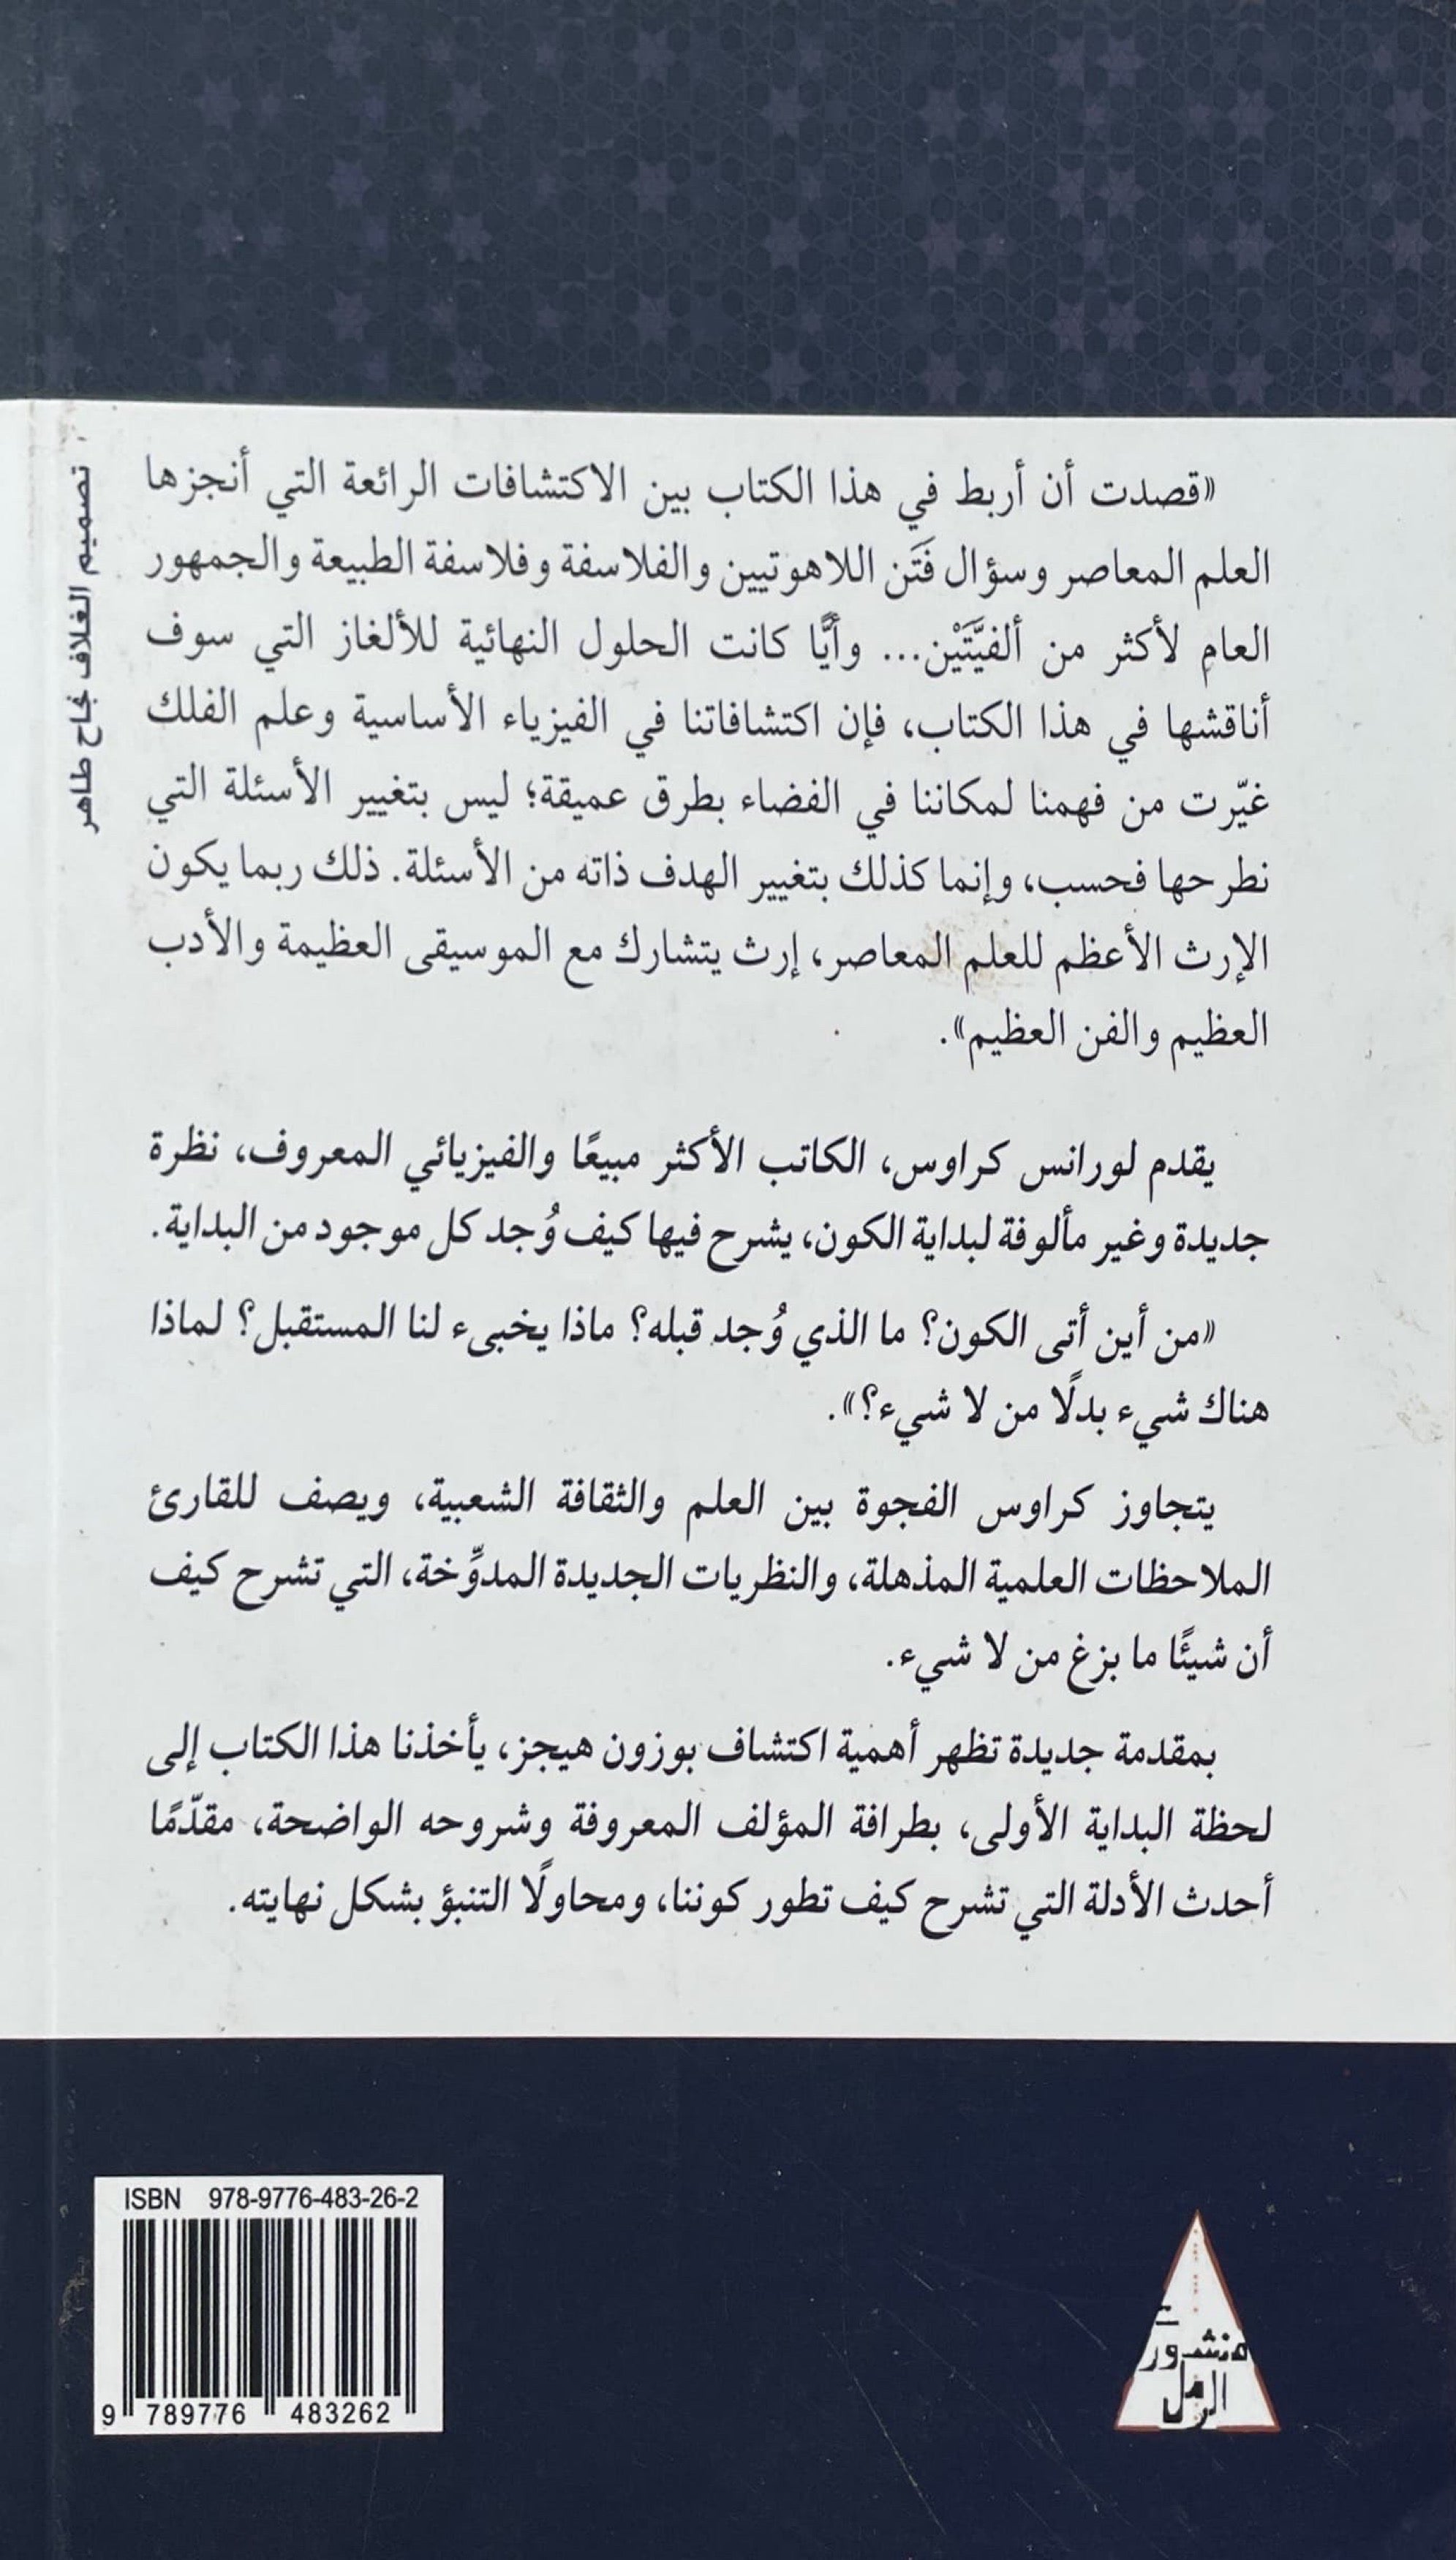 «قصدت أن أربط في هذا الكتاب بين الاكتشافات الرائعة التي أنجزها
العلم المعاصر وسؤال فَتَن اللاهوتيين والفلاسفة وفلاسفة الطبيعة والجمهور
العام لأكثر من ألفيَّتَيْن... وأيًّا كانت الحلول النهائية للألغاز التي سوف
أناقشها في هذا الكتاب، فإن اكتشافاتنا في الفيزياء الأساسية وعلم الفلك
غيّرت من فهمنا لمكاننا في الفضاء بطرق عميقة؛ ليس بتغيير الأسئلة التي
نطرحها فحسب، وإنما كذلك بتغيير الهدف ذاته من الأسئلة. ذلك ربما يكون
الإرث الأعظم للعلم المعاصر، إرث يتشارك مع الموسيقى العظيمة والأدب
العظيم والفن العظيم».
يقدم لورانس كراوس، الكاتب الأكثر مبيعًا والفيزيائي المعروف، نظرة
جديدة وغير مألوفة لبداية الكون، يشرح فيها كيف وُجد كل موجود من البداية.
«من أين أتى الكون؟ ما الذي وُجد قبله؟ ماذا يخبىء لنا المستقبل؟ لماذا
هناك شيء بدلًا من لا شيء؟».
يتجاوز كراوس الفجوة بين العلم والثقافة الشعبية، ويصف للقارئ
الملاحظات العلمية المذهلة، والنظريات الجديدة المدوِّخة، التي تشرح كيف
أن شيئًا ما بزغ من لا شيء.
بمقدمة جديدة تظهر أهمية اكتشاف بوزون هيجز، يأخذنا هذا الكتاب إلى
لحظة البداية الأولى، بطرافة المؤلف المعروفة وشروحه الواضحة، مقدّمًا
أحدث الأدلة التي تشرح كيف تطور كوننا، ومحاولًا التنبؤ بشكل نهايته.
تصميم الغلاف نجاح طاهر
ISBN 978-9776-483-26-2
9 789776 483262
منشورات
الرمل